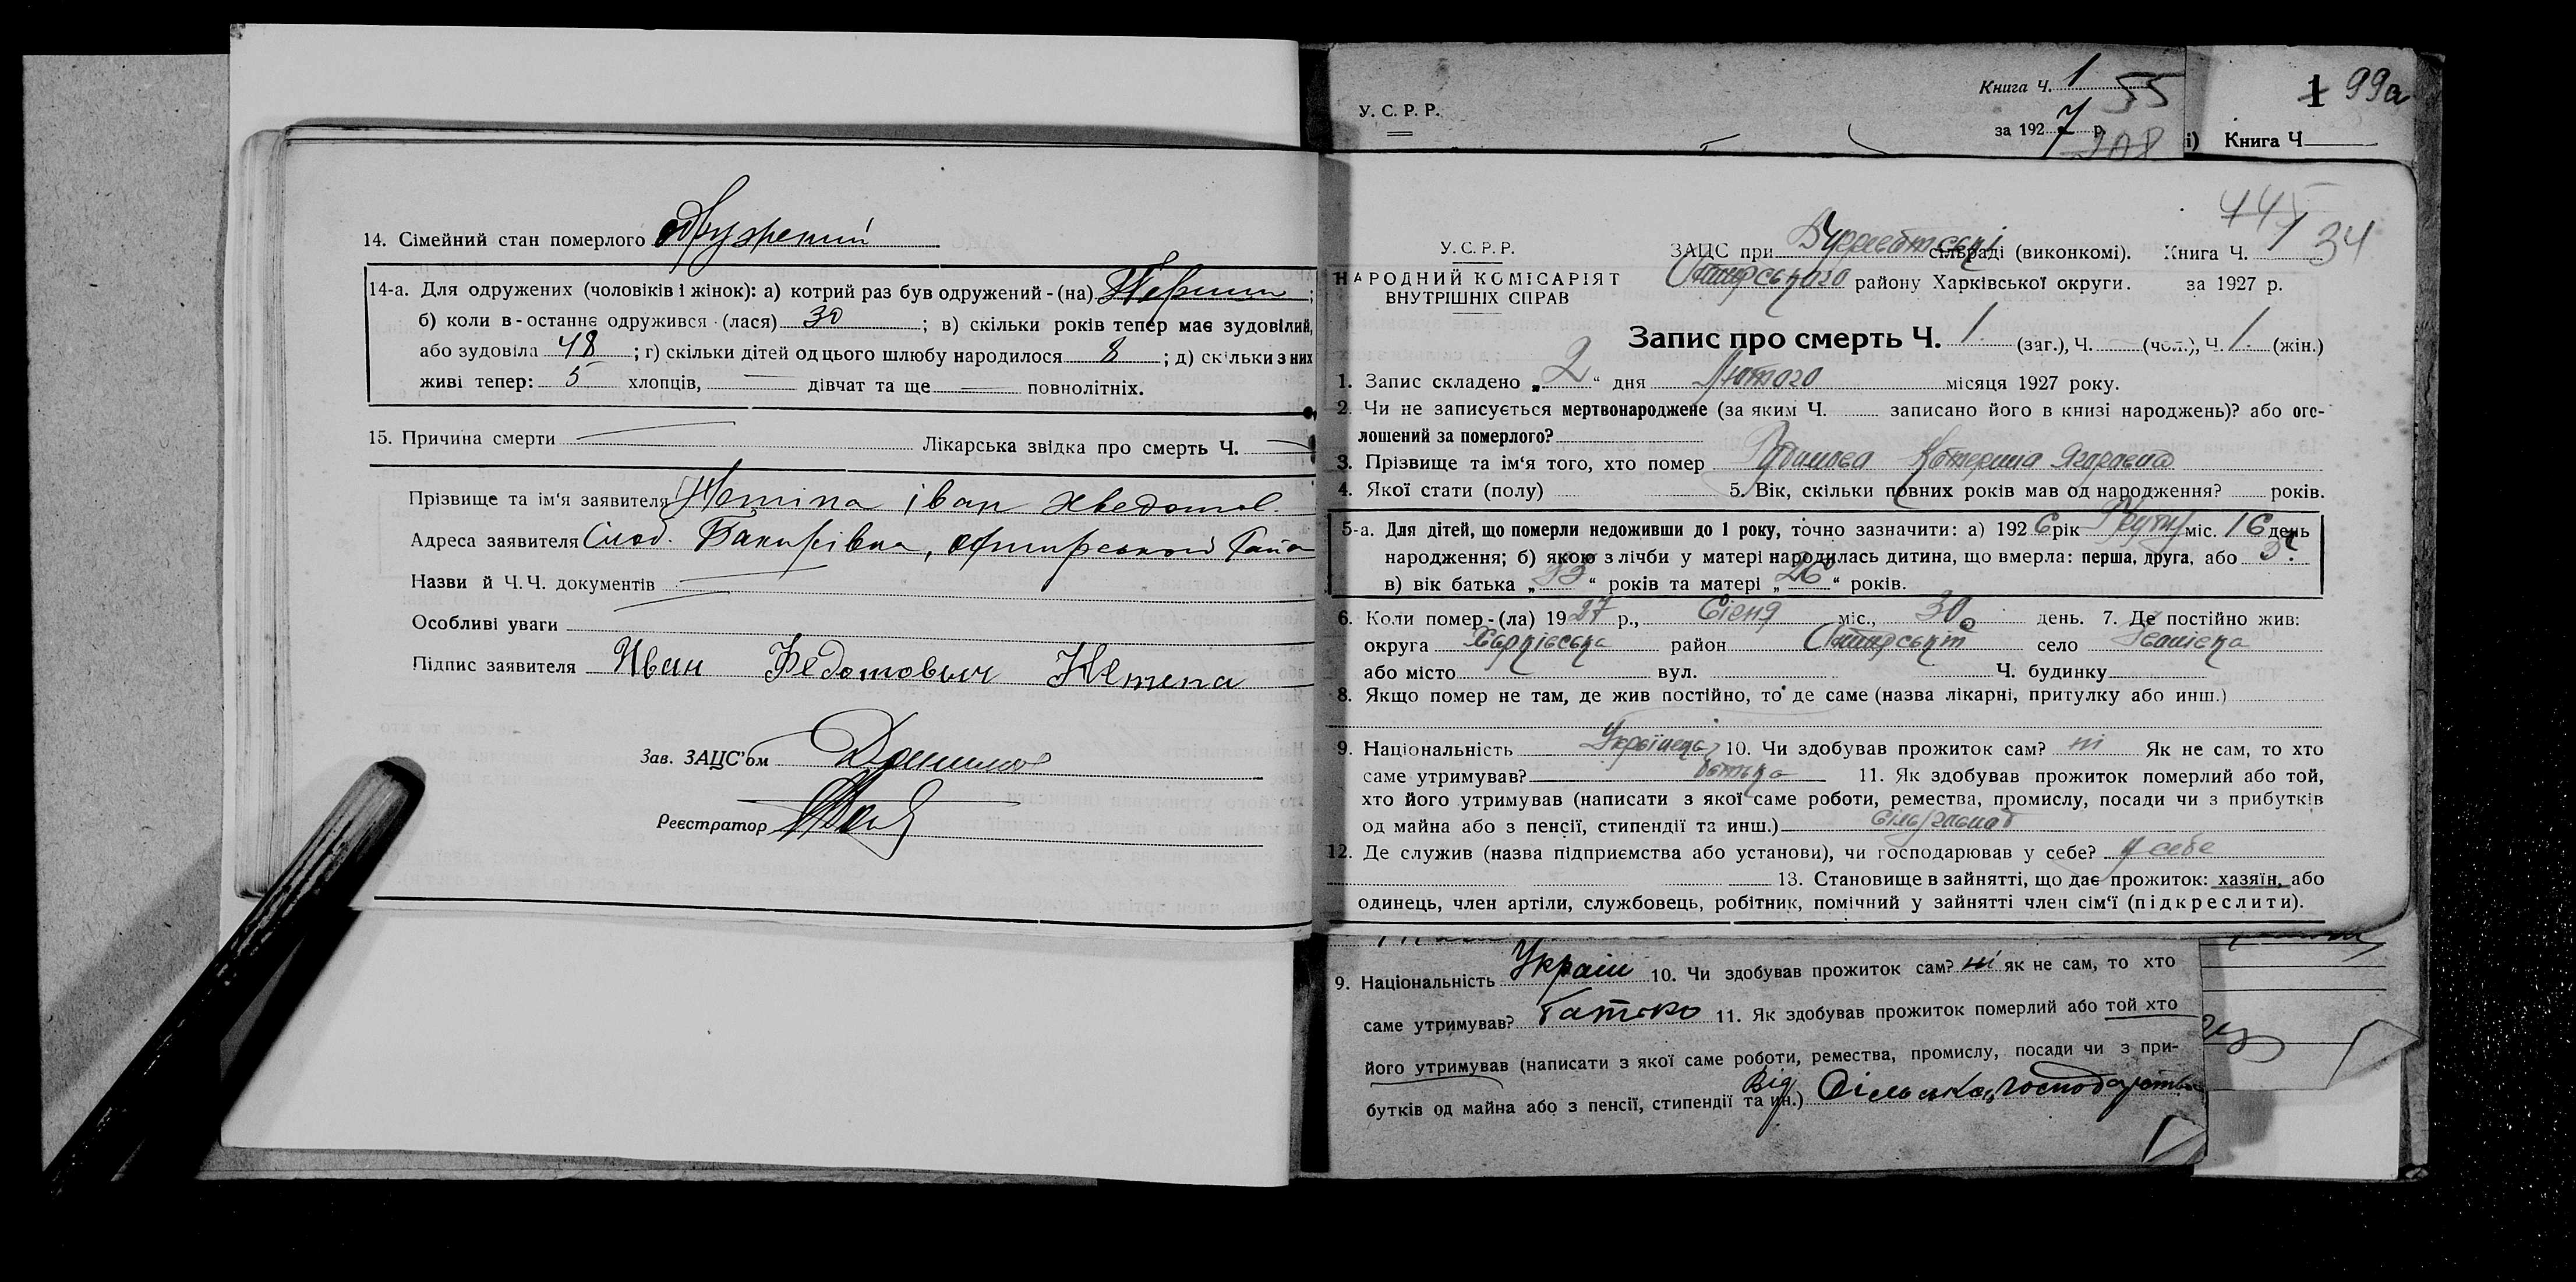 14. Сімейний стан померлого Одружений
14-а. Для одружених (чоловіків і жінок): а) котрий раз був одружений-(на) Перший;
б) коли в-останнє одружився (лася) 30; в) скільки років тепер має зудовілий,
або зудовіла 48; г) скільки дітей од цього шлюбу народилося 8; д) скільки з них
живі тепер: 5 хлопців, дівчат та ще повнолітніх.
15. Причина смерти Лікарська звідка про смерть Ч.
Прізвище та ім'я заявителя іван Хведотов.
Адреса заявителя Слоб. Бакирівка,
Назви й Ч.Ч. документів
Особливі уваги
Підпис заявителя Иван Федотович
Зав. ЗАЦС'ом
Реєстратор
У. С. Р. Р.
Книга Ч. 1 55
за 1927 р.
208
1 99а
і) Книга Ч
445
34
У.С.Р.Р.
НАРОДНИЙ КОМІСАРІЯТ
ВНУТРІШНІХ СПРАВ
ЗАЦС при сільраді (виконкомі). Книга Ч. 1
району Харківської округи. за 1927 р.
Запис про смерть Ч. 1. (заг.), Ч. (чол.), Ч. 1. (жін.)
1. Запис складено „2“ дня Лютого місяця 1927 року.
2. Чи не записується мертвонароджене (за яким Ч. записано його в книзі народжень)? або ого-
лошений за померлого?
3. Прізвище та ім'я того, хто помер Катерина
4. Якої стати (полу) 5. Вік, скільки повних років мав од народження? років.
5-а. Для дітей, що померли недоживши до 1 року, точно зазначити: а) 1926 рік міс. 16 день
народження; б) якою з лічби у матері народилась дитина, що вмерла: перша, друга, або
в) вік батька „33“ років та матері „26“ років.
6. Коли помер-(ла) 1927 р., Січня міс., 30 день. 7. Де постійно жив:
округа Харківська район село
або місто вул. Ч. будинку
8. Якщо помер не там, де жив постійно, то де саме (назва лікарні, притулку або инш.)
9. Національність Українець 10. Чи здобував прожиток сам? ні Як не сам, то хто
саме утримував? батько 11. Як здобував прожиток померлий або той,
хто його утримував (написати з якої саме роботи, ремества, промислу, посади чи з прибутків
од майна або з пенсії, стипендії та инш.)
12. Де служив (назва підприємства або установи), чи господарював у себе? у себе
13. Становище в зайнятті, що дає прожиток: хазяїн, або
одинець, член артіли, службовець, робітник, помічний у зайнятті член сім'ї (підкреслити).
9. Національність Україн 10. Чи здобував прожиток сам? ні як не сам, то хто
саме утримував? Батько 11. Як здобував прожиток померлий або той хто
його утримував (написати з якої саме роботи, ремества, промислу, посади чи з при-
бутків од майна або з пенсії, стипендії та ин.) Від Сільська господарства